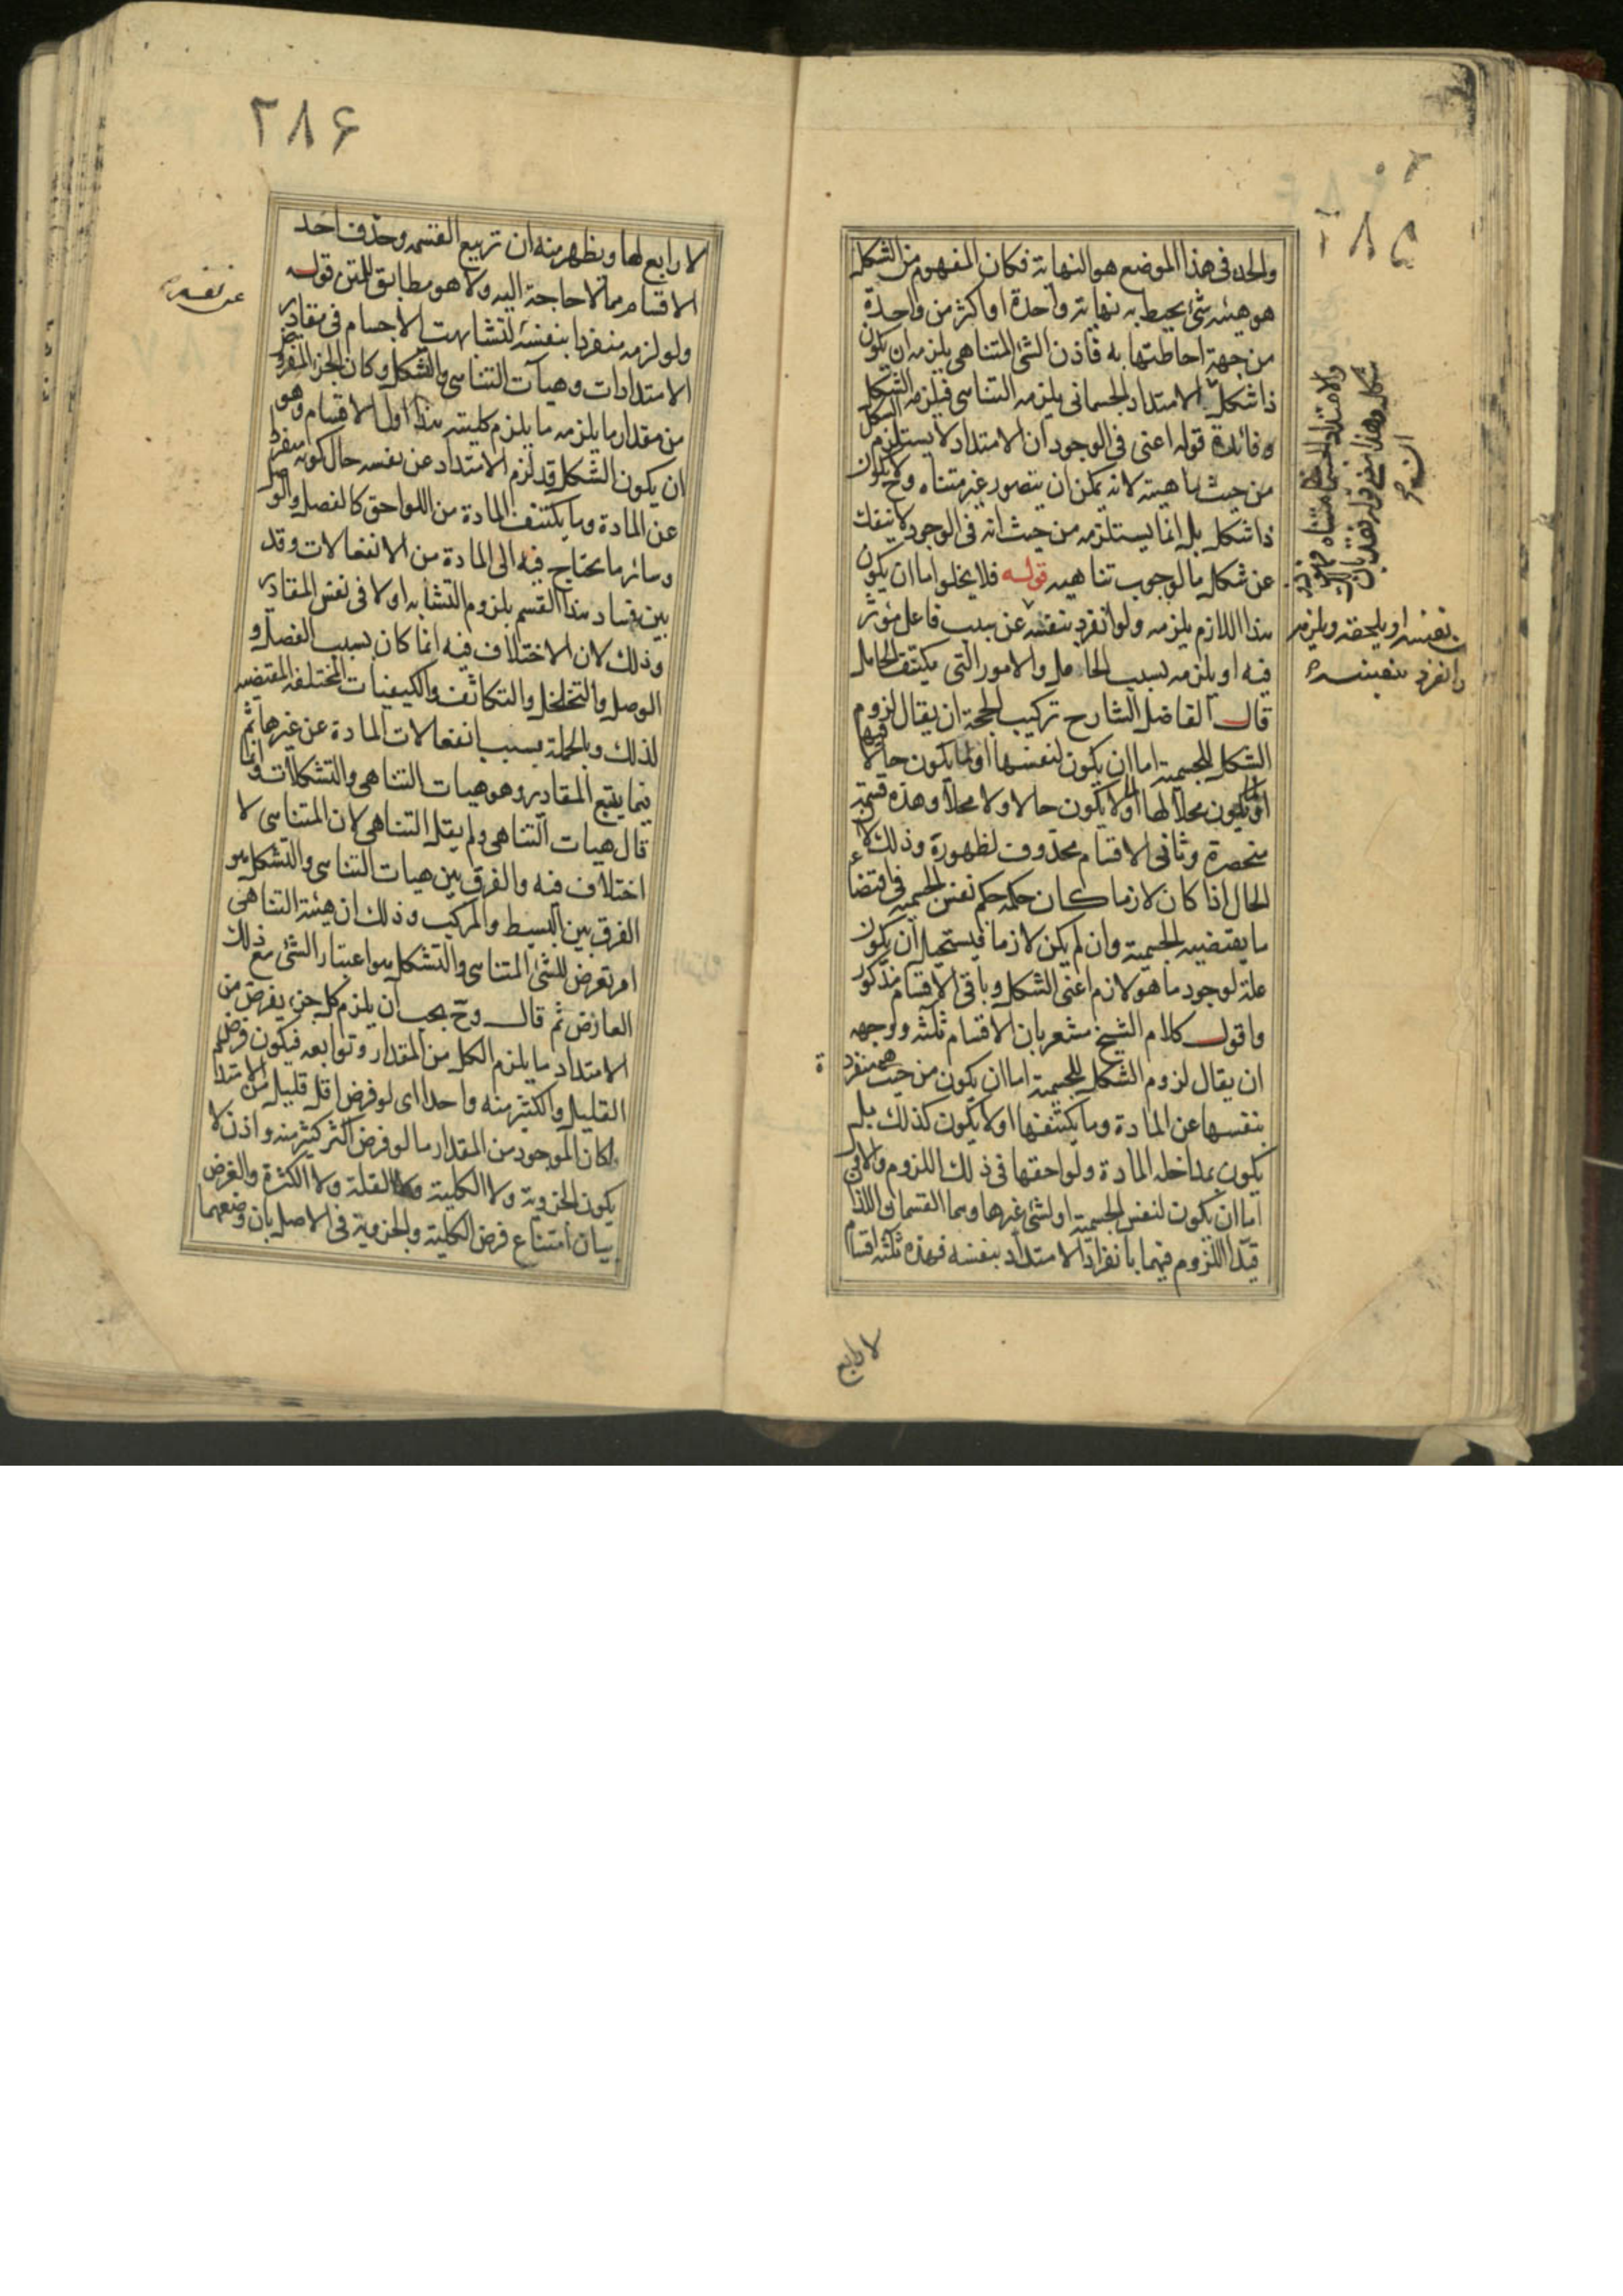 ٢٨٥
والحد فى هذا الموضع هو النهاية فكان المفهوم من الشكل
هو هيئة شئ يحيط به نهاية واحدة او اكثر من واحدة
من جهة احاطتها به فاذن الشئ المتناهى يلزمه ان يكون
ذا شكل الامتداد الجسمانى يلزمه التناهى فيلزمه الشكل
وفائدة قوله اعنى فى الوجود ان الامتداد لا يستلزم الشكل
من حيث ماهيته لانه يمكن ان يتصور غير متناه وح لا يكون
ذا شكل بل انما يستلزمه من حيث انه فى الوجود لا ينفك
عن شكل ما لوجوب تناهيه قوله فلا يخلوا اما ان يكون
هذا اللازم يلزمه ولو انفرد بنفسه عن سبب فاعل مؤثر
فيه او يلزمه بسبب الحامل والامور التى يكتنف الحامل
قال الفاضل الشارح تركيب الحجة ان يقال لزوم
الشكل للجسمية اما ان يكون لنفسها او لما يكون حالا فيها
او لما يكون محلا لها او لما لا يكون حالا ولا محلا وهذه قسمة
منحصرة وثانى الاقسام محذوف لظهوره وذلك لان
الحال اذا كان لازما كان حكمه حكم نفس الجسمية فى اقتضاء
ما يقتضيه الجسمية وان لم يكن لازما فيستحيل ان يكون
علة لوجود ما هو لازم اعنى الشكل وباقى الاقسام مذكور
واقول كلام الشيخ مشعر بان الاقسام ثلثه ووجهه
ان يقال لزوم الشكل للجسمية اما ان يكون من حيث هى منفردة
بنفسها عن المادة وما يكتنفها او لا يكون كذلك بل
يكون بمداخلة المادة ولواحقها فى ذلك اللزوم والاول
اما ان يكون لنفس الجسمية او لشئ غيرها وهما القسمان اللذا
قيد اللزوم فيهما بانفراد الامتداد بنفسه فهذه ثلثه اقسام
والامتداد الجسمانى متناه فهو
شكل وهذا معنى قوله فقد بان
ان
بنفسه او يلحقه ويلزمه
وانفرد بنفسه
لا رابع
٢٨۶
لا رابع لها ويظهر منه ان تربيع القسمه وحذف احد
الاقسام مما لا حاجة اليه ولا هو مطابق للمتن قوله
ولو لزمه منفردا بنفسه لتشابهت الاجسام فى مقادير
الامتدادات وهيآت التناهى والتشكل وكان الجزء المفروض
من مقدار ما يلزمه ما يلزم كليته هذا اول الاقسام وهو
ان يكون الشكل قد لزم الامتداد عن نفسه حال كونه منفردا
عن المادة وما يكتنف المادة من اللواحق كالفصل والوصل
وسائر ما يحتاج فيه الى المادة من الانفعالات وقد
بين فساد هذا القسم بلزوم التشابه اولا فى نفس المقادير
وذلك لان الاختلاف فيه انما كان بسبب الفصل و
الوصل والتخلخل والتكاثف والكيفيات المختلفه المقتضيه
لذلك وبالجملة بسبب انفعالات المادة عن غيرها ثم
فيما يتبع المقادير وهو هيات التناهى والتشكلات وانما
قال هيات التناهى ولم يقل التناهى لان المتناهى لا
اختلاف فيه والفرق بين هيات التناهى والتشكل هو
الفرق بين البسيط والمركب وذلك ان هيئة التناهى
امر تعرض للشئ المتناهى والتشكل هو اعتبار الشئ مع ذلك
العارض ثم قال وح يجب ان يلزم كل جزء يفرض من
الامتداد ما يلزم الكل من المقدار وتوابعه فيكون فرض
القليل والكثير منه واحدا اى لو فرض اقل قليل من الامتداد
لكان الموجود من المقدار ما لو فرض اكثر كثير منه واذن لا
يكون الجزوية ولا الكلية ولا القلة ولا الكثرة والغرض
بيان امتناع فرض الكلية والجزوية فى الاصل بان وضعهما
عن نفسه